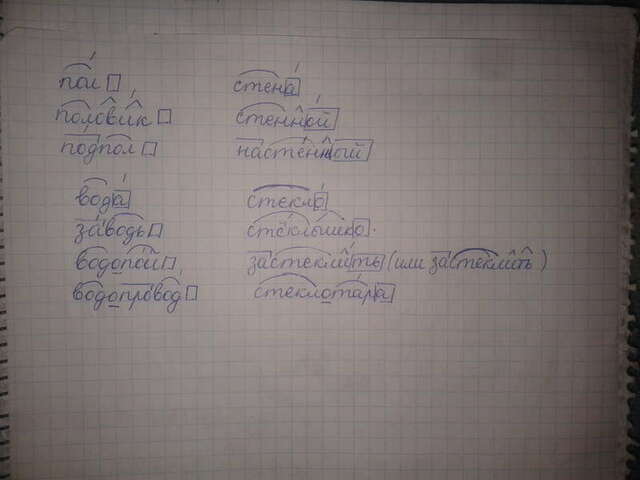 пол
половик
подпол
вода
заводь
водопой
водопровод
стена
стенной
настенный
стекло
стёклышко.
застеклить (или застеклить)
стеклотара